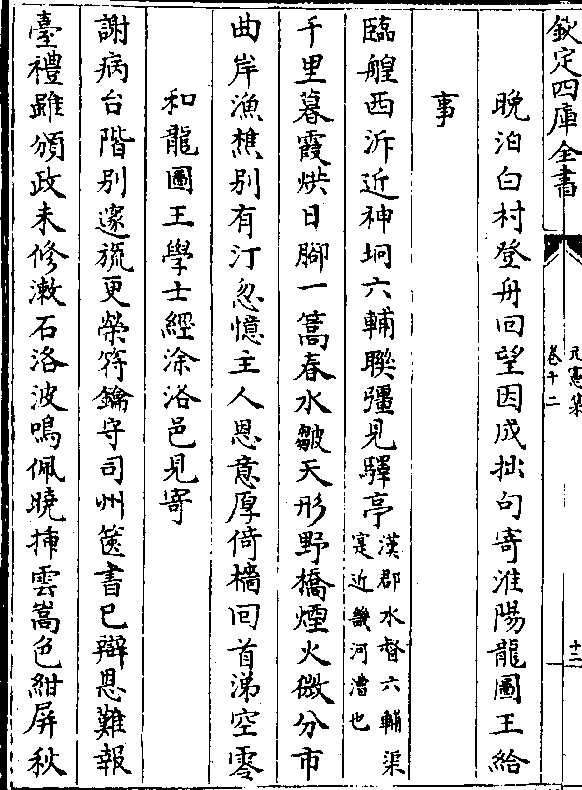 欽定四庫全書
元憲集
卷十二
十二
晚泊白村登舟回望因成拙句寄淮陽龍圖王給
事
臨艎西泝近神坰六輔聯疆見驛亭漢郡水督六輔渠寔近畿河漕也
千里暮霞烘日腳一篙春水皺天形野橋煙火微分市
曲岸漁樵別有汀忽憶主人恩意厚倚檣回首涕空零
和龍圖王學士經涂洛邑見寄
謝病台階別邃旒更榮符鑰守司州篋書已辯恩難報
臺禮雖頒政未修漱石洛波鳴佩曉揷雲嵩色紺屏秋